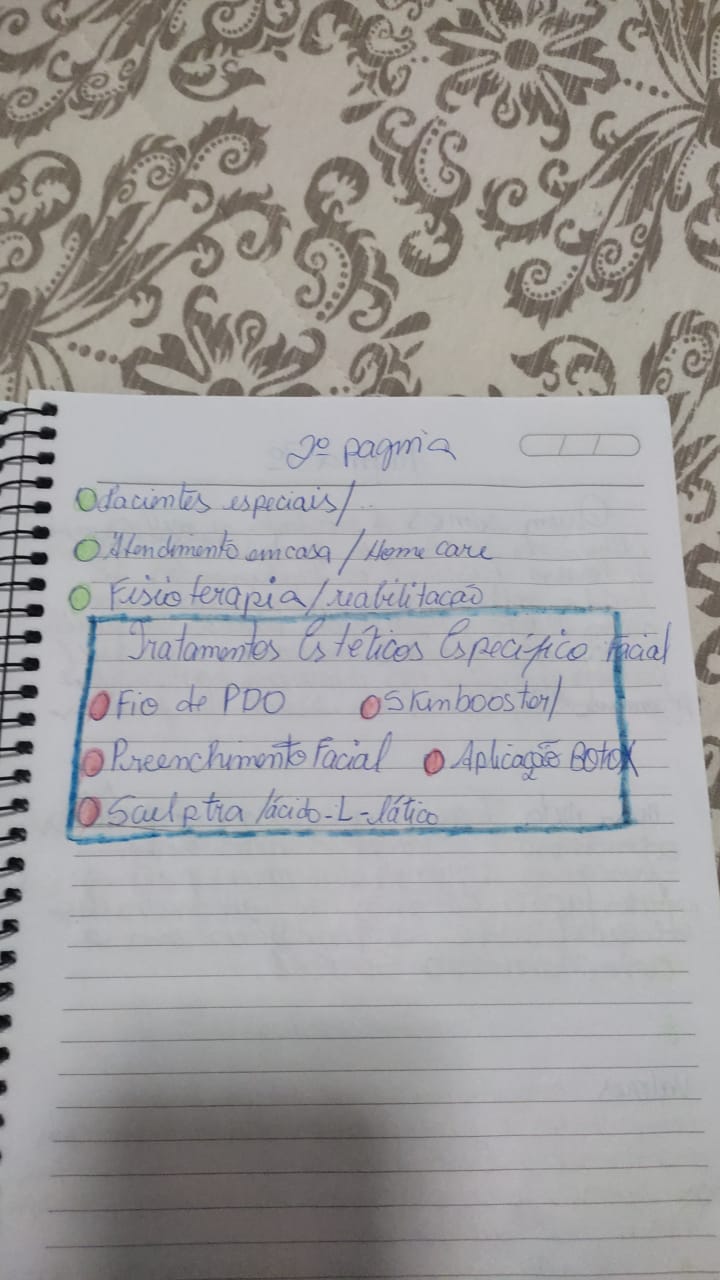 2º pagina
Pacientes especiais/..
Atendimento em casa / Home care
Fisioterapia/reabilitação
Tratamentos Estéticos Específico Facial
Fio de PDO Skinbooster/
Preenchimento Facial Aplicação Botox
Sculptra/ácido-L-lático